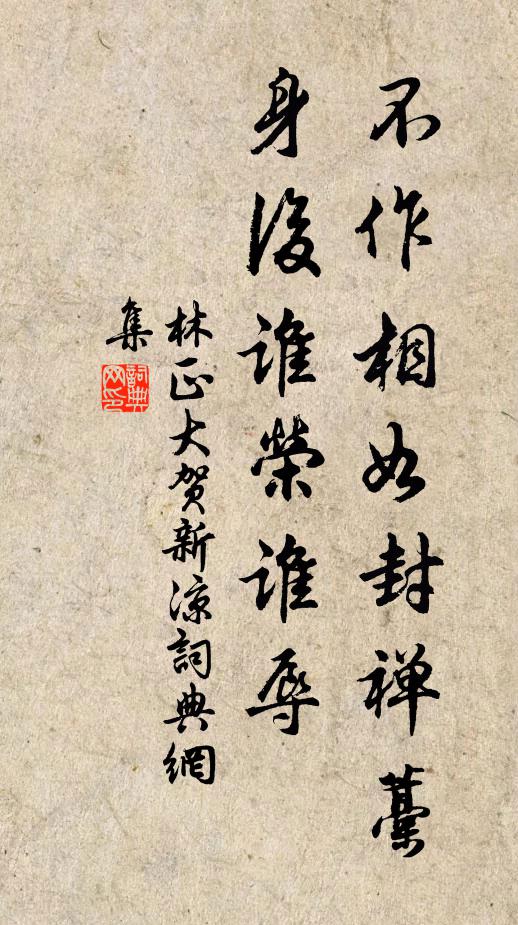 不作相如封禅藁
身後谁榮谁辱
林正大贺新凉詞典網
集
詞典
网印